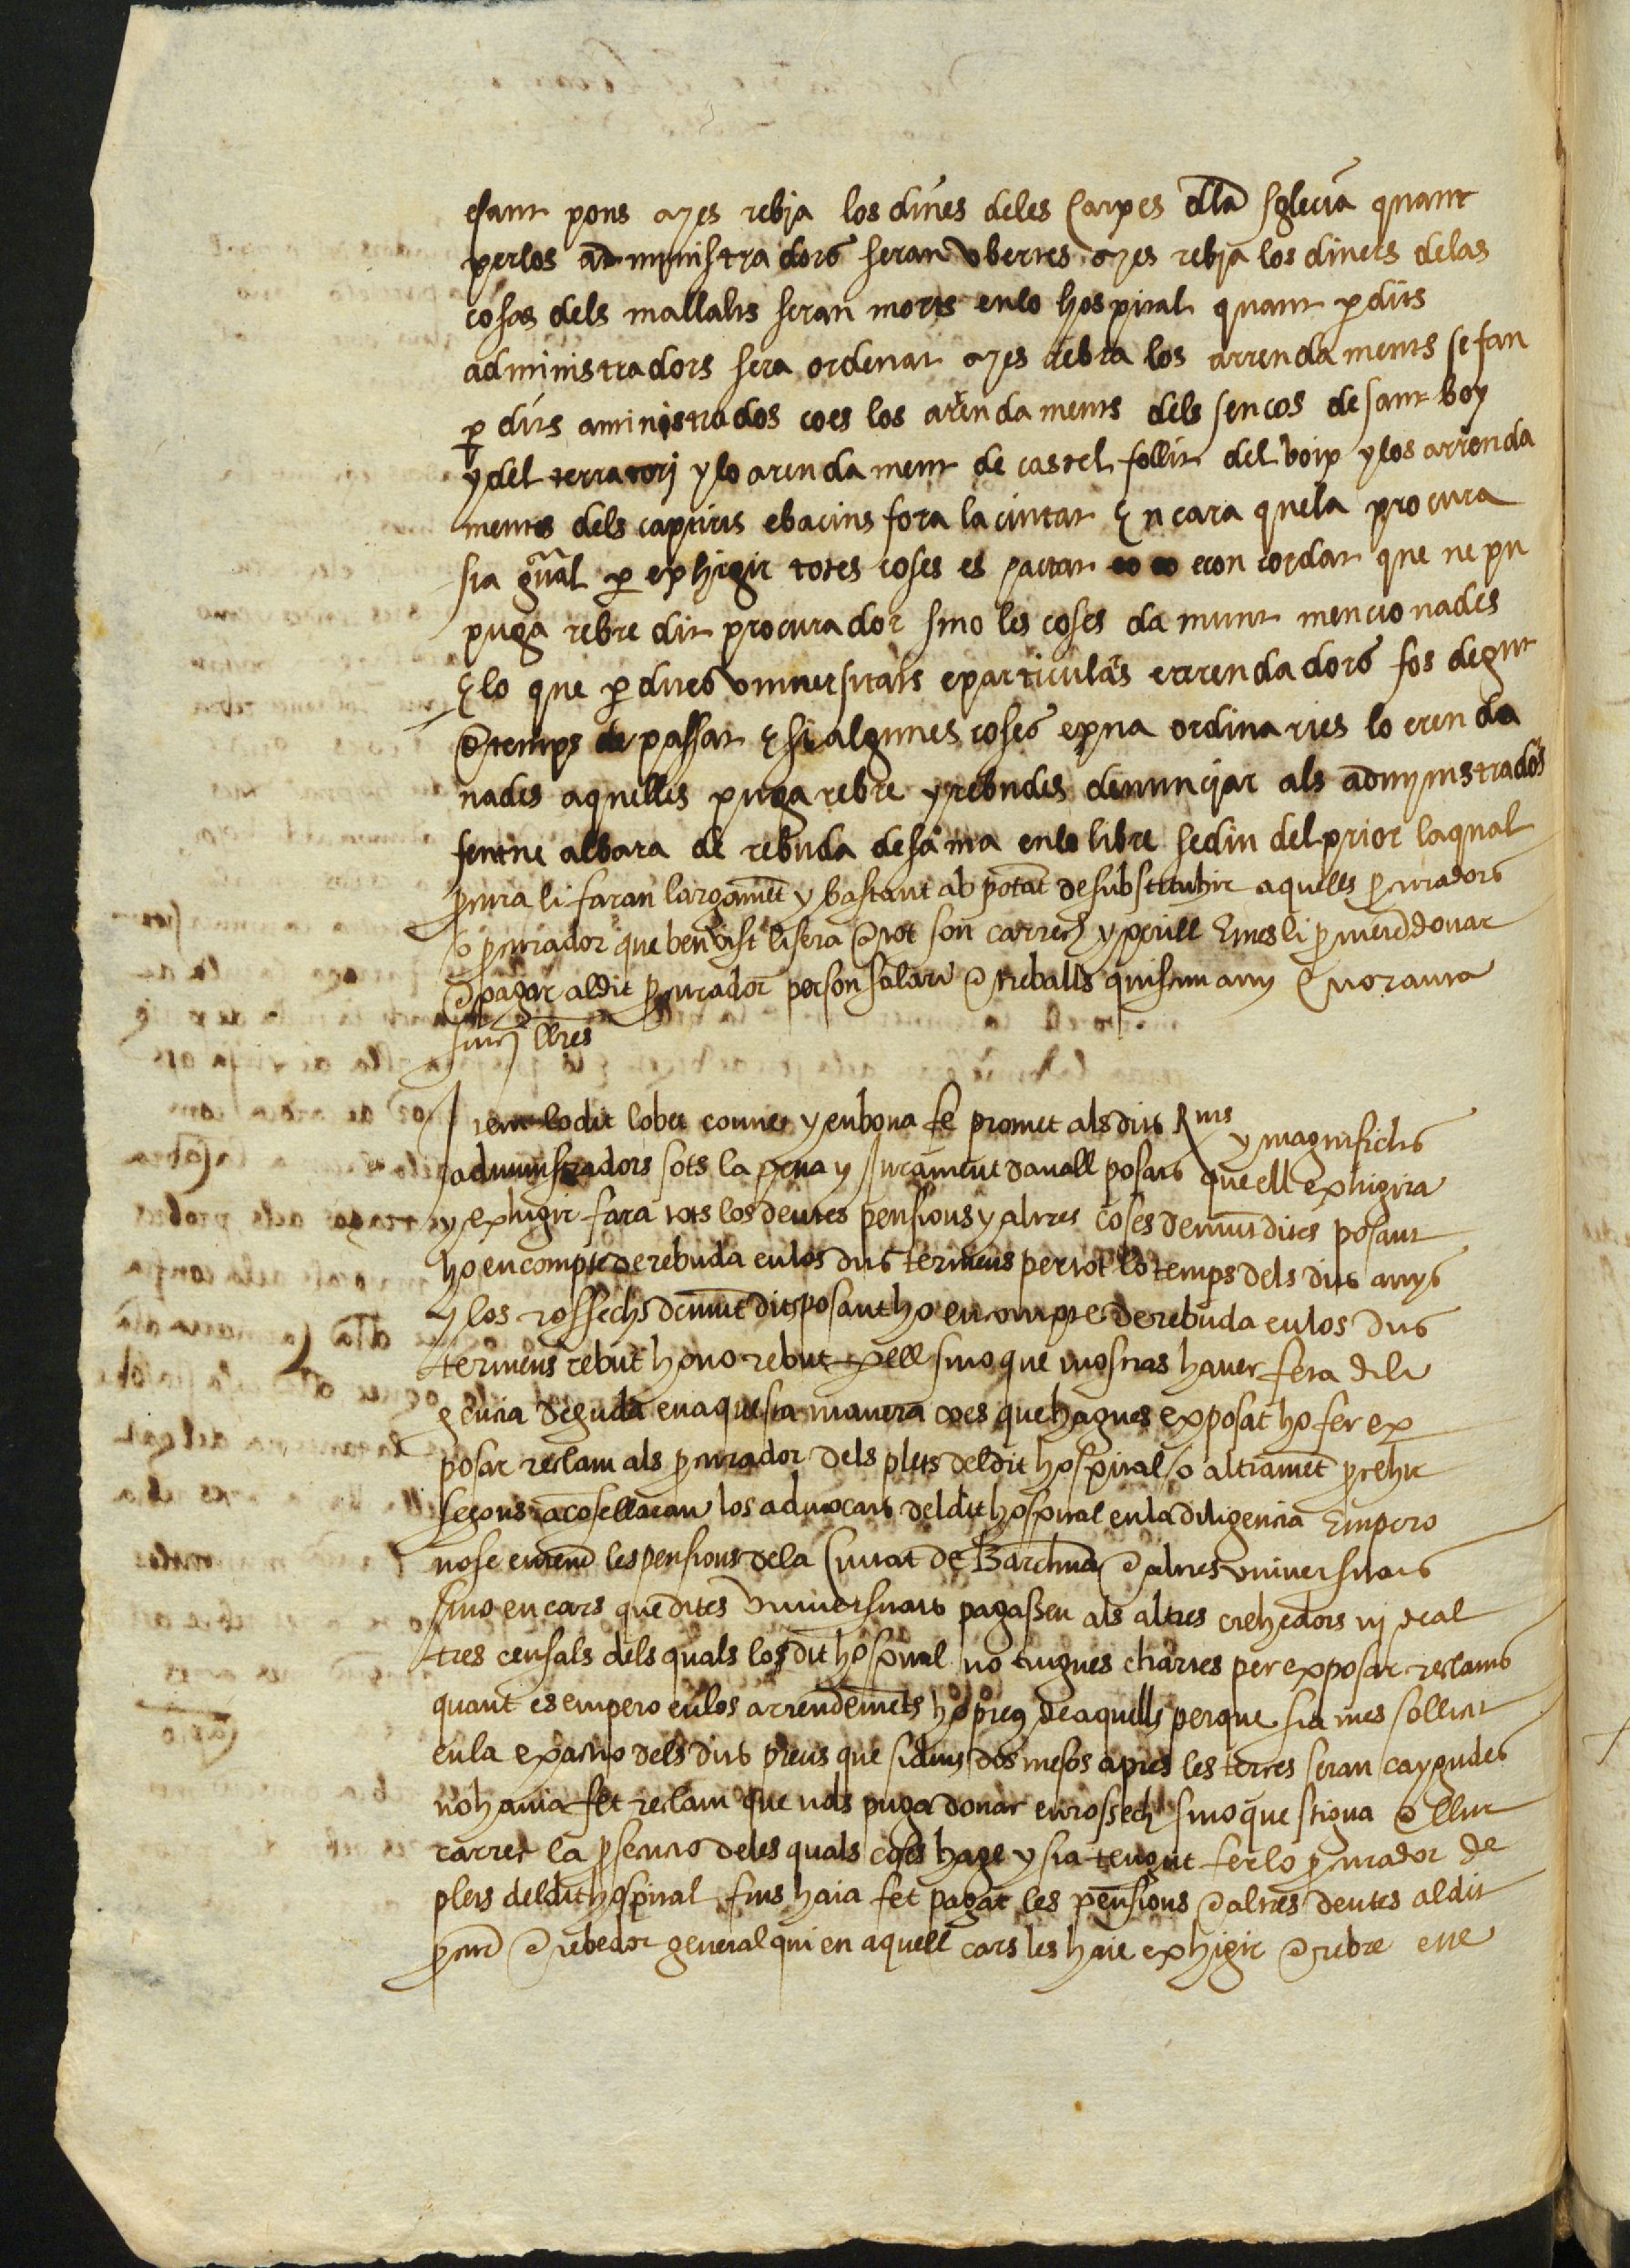 esant pons mes rebja los dines deles Carpes dla sglecia quant
perlos administradors seran vbertes mes rebja los diners delas
cosas dels mallalts seran morts enlo hospital quant p dits
administradors sera ordenat mes rebra los arrendaments sefan
p dits aministrados coes los arendaments dels sencos desant boy
y del terratorj ylo arendament de castel follit del boix ylos arrenda
ments dels captius ebacins fora la ciutat Encara quela procura
sia gnal p exhigir totes coses es pactat econcordat que ne pu
puga rebre dit procurador sino les coses damunt mencionades
Elo que p dites vniuersitats eparticulas errendadors fos degut
de temps de passat Esi algunes coses exna ordinaries lo eren da
nades aquelles puga rebre y rebudes denunciar als admjnistrados
fentne albara de rebuda desa ma enlo libre sediu del prior laqual
pcura li faran largamet y bastant ab potat desubstituhir aquells pcuradors
o pcurador que ben vist lisera e tot son carrech y perill Emes li pmeid donar
e pagar aldit pcurador per son salari e treballs quiscun any Noranta
sinch llres
Item lo dit lobet conue y en bona fe promet als dits Rms y magnifichs
administradors sots la pena y Jurament dauall posats que ell exhigira
y exhigir fara tots los deutes pensions y altres coses demut dites posant
ho en compte de rebuda en los dits termens per tot lo temps dels dits anys
y los rossechs demut dits posant ho en compte de rebuda en los dits
termens rebut ho no rebut p ell sino que mostras hauer feta dili
gencia deguda en aquesta manera coes que hagues exposat ho fer ex
posar reclam als pcurador dels plets del dit hospital o altramet pcehir
segons acosellaran los aduocats del dit hospital en la diligencia Empero
no se enten les pensions de la Ciutat de Barchna e altres vniuersitats
sino en cars que dites vniuersitats pagassen als altres crehedors nj de al
tres censals dels quals los dit hospital no tingues chartes per exposar reclams
quant es empero en los arrendemets ho preu de aquells perque sia mes sollicit
en la exactio dels dits preus que si dins dos mesos apres les terces seran caygudes
no hauia fet reclam que nols puga donar en rossech sino que stigua e llur
carrec la psecucio deles quals coses hage y sia tengut fer lo pcurador de
plets del dit hospital fins haia fet pagar les pensions e altres deutes al dit
pcurd e rebedor general qui en aquell cars les haie exhigir e rebre ene